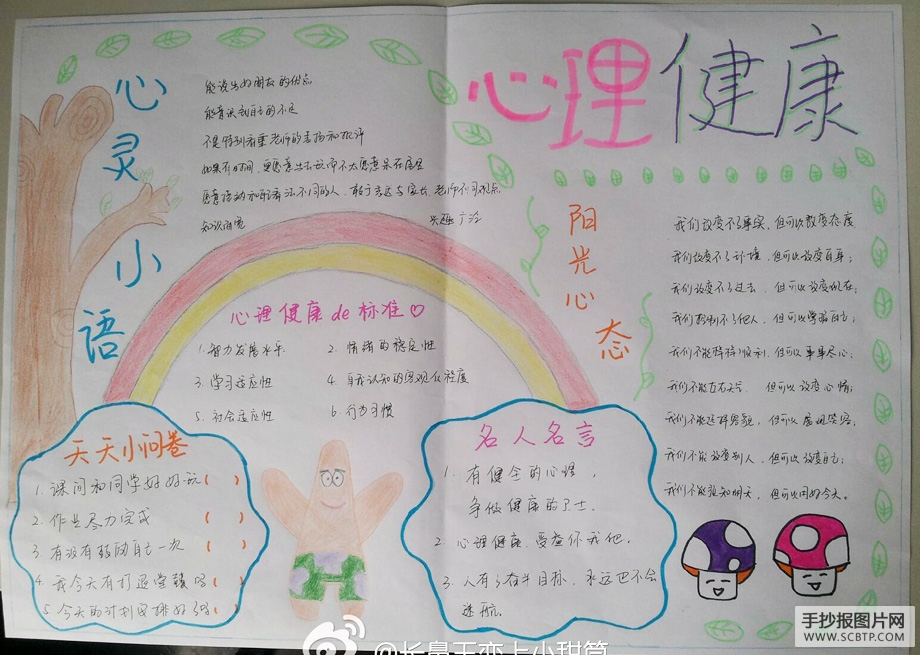 心理健康
心灵小语
能说出好朋友的优点
能意识到自己的不足
不是特别看重老师的表扬和批评
如果有时间，更愿意出去玩而不太愿意呆在屋里
愿意接动和自己看法不同的人，敢于表达与家长、老师不同观点
知识迎宽
兴趣广泛
阳光心态
我们改变不了事实，但可以改变态度
我们改变不了环境，但可以改变自身；
我们改变不了过去，但可以改变现在；
我们控制不了他人，但可以掌握自己；
我们不能样样顺利，但可以事事尽心；
我们不能左右天气，但可以改变心情；
我们不能选择容貌，但可以展现笑容；
我们不能改变别人，但可以改变自己；
我们不能预知明天，但可以用好今天。
心理健康de标准♡
1.智力发展水平
2.情绪的稳定性
3.学习适应性
4.自我认知的客观化程度
5.社会适应性
6.行为习惯
天天小问卷
1.课间和同学好好玩( )
2.作业尽力完成( )
3.有没有鼓励自己一次( )
4.我今天有打退堂鼓吗( )
5.今天的计划安排好了吗( )
名人名言
1.有健全的心理，
争做健康的卫士。
2.心理健康，受益你我他。
3.人有了奋斗目标，永远也不会
迷航。
手抄报图片网
WWW.SCBTP.COM
@长鼻王恋上小甜筒